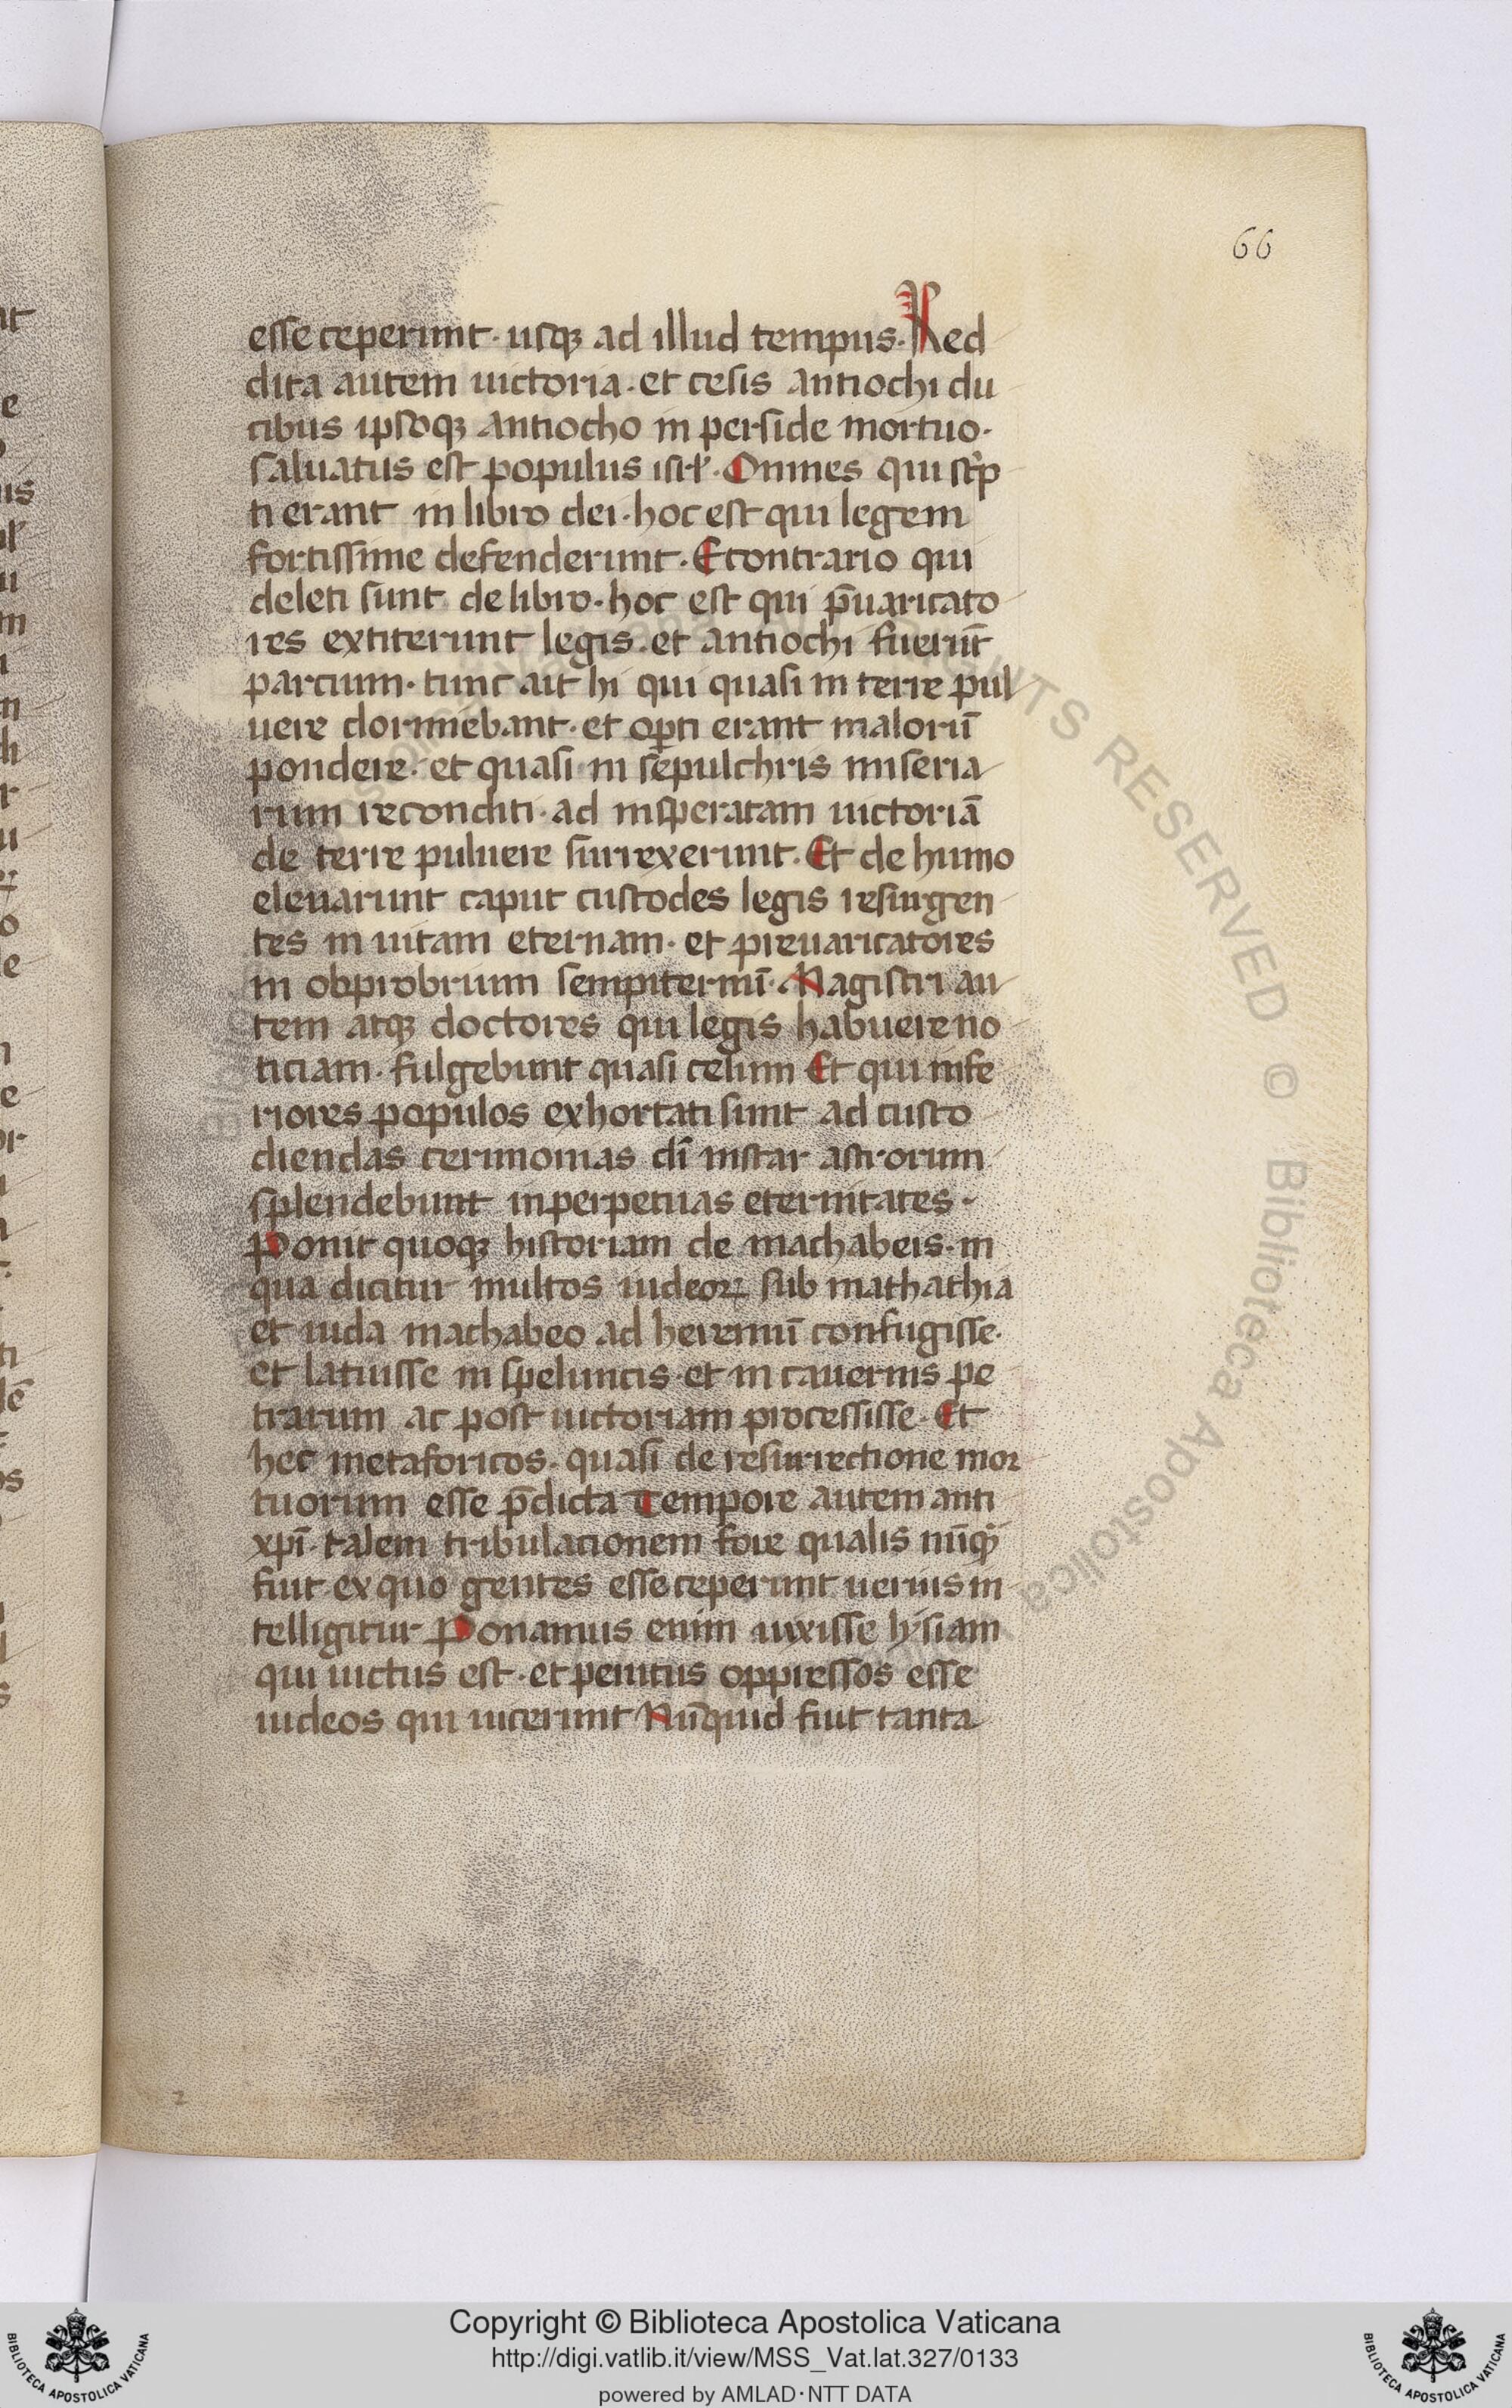 66
esse ceperunt · usqꝫ ad illud tempus · Red
dita autem uictoria · et cesis antiochi du
cibus ipsoqꝫ antiocho in perside mortuo ·
saluatus est populus isrl̓ · Omnes qui sc̓p
ti erant in libro dei · hoc est qui legem
fortissime defenderunt · Econtrario qui
deleti sunt de libro · hoc est qui p̄uaricato
res extiterunt legis · et antiochi fuerūt
parcium · tunc ait hi qui quasi in terre pul
uere dormiebant · et op̱ti erant malorū
pondere · et quasi in sepulchris miseria
rum reconditi · ad insperatam uictoriā
de terre puluere surrexerunt · Et de humo
eleuarunt caput custodes legis resurgen
tes in uitam eternam · et preuaricatores
in obprobrium sempiternū · Magistri au
tem atqꝫ doctores qui legis habuere no
ticiam · fulgebunt quasi celum Et qui infe
riores populos exhortati sunt ad custo
diendas cerimonias dī instar astrorum
splendebunt in perpetuas eternitates ·
Ponit quoqꝫ historiam de machabeis · in
qua dicitur multos iudeoꝝ sub mathathia
et iuda machabeo ad heremū confugisse ·
et latuisse in speluncis et in cauernis pe
trarum ac post uictoriam processisse · Et
hec metaforicos · quasi de resurrectione mor
tuorum esse p̄dicta Tempore autem anti
xp̄i · talem tribulacionem fore qualis nūqͣ
fuit ex quo gentes esse ceperunt uerius in
telligitur Ponamus enim uixisse lysiam
qui uictus est · et penitus oppressos esse
iudeos qui uicerunt Nūquid fuit tanta
RIGHTS RESERVED © Biblioteca Apostolica
Copyright © Biblioteca Apostolica Vaticana
http://digi.vatlib.it/view/MSS_Vat.lat.327/0133
powered by AMLAD·NTT DATA
BIBLIOTECA APOSTOLICA VATICANA
BIBLIOTECA APOSTOLICA VATICANA